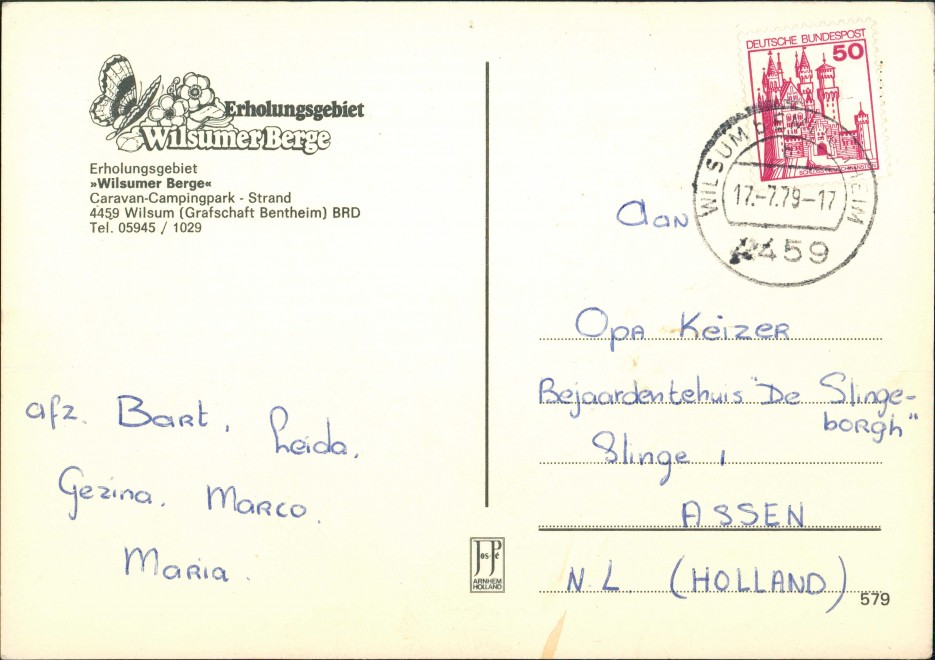 Erholungsgebiet
Wilsumer Berge
Erholungsgebiet
»Wilsumer Berge«
Caravan-Campingpark - Strand
4459 Wilsum (Grafschaft Bentheim) BRD
Tel. 05945 / 1029
afz. Bart, Leida,
Gezina, Marco,
Maria.
DEUTSCHE BUNDESPOST
50
WILSUM
HEIM
17.-7.79-17
4459
Aan
Opa Keizer
Bejaardentehuis "De Slinge-
borgh"
Slinge 1
ASSEN
N.L. (HOLLAND)
JosPé
ARNHEM
HOLLAND
579